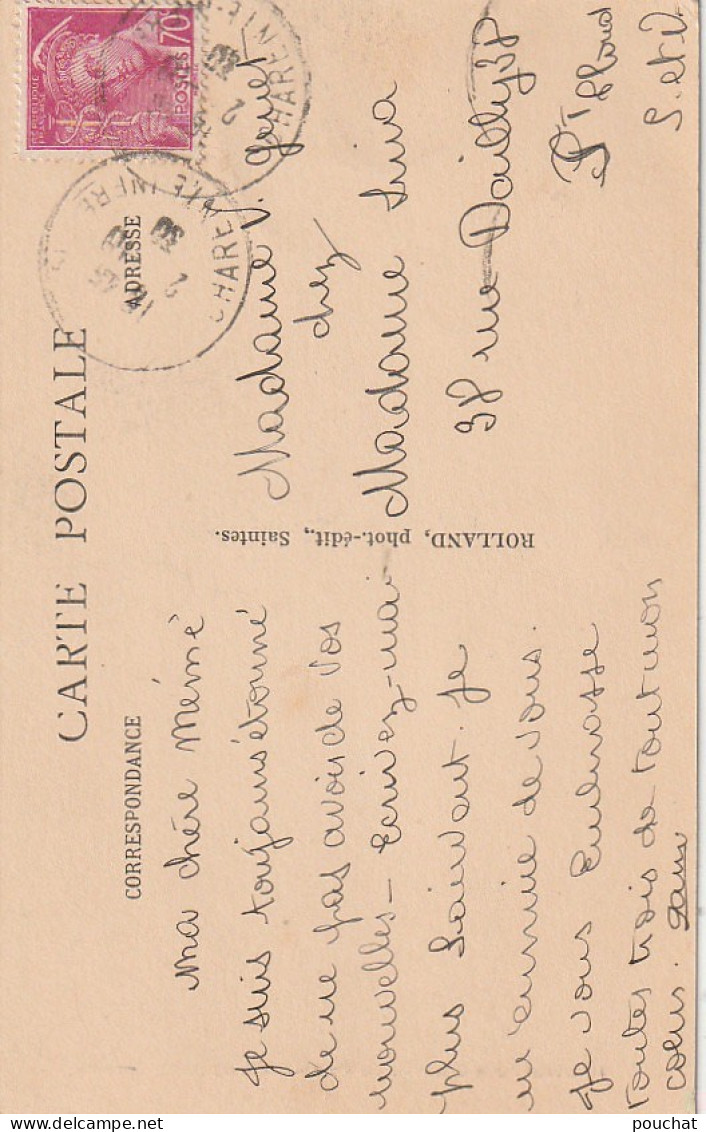 CARTE POSTALE
CORRESPONDANCE
ADRESSE
Ma chère Mémé
Je suis toujours étonné
de ne pas avoir de vos
nouvelles - Ecrivez-moi
plus souvent. Je
m'ennuie de vous.
Je vous embrasse
toutes trois de tout mon
cœur.
ROLLAND, phot.-édit., Saintes.
Madame V.
chez
Madame
38 rue Dailly 38
St Cloud
S. et O.
70c
POSTES
CHARENTE INFRE
CHARENTE
pouchat